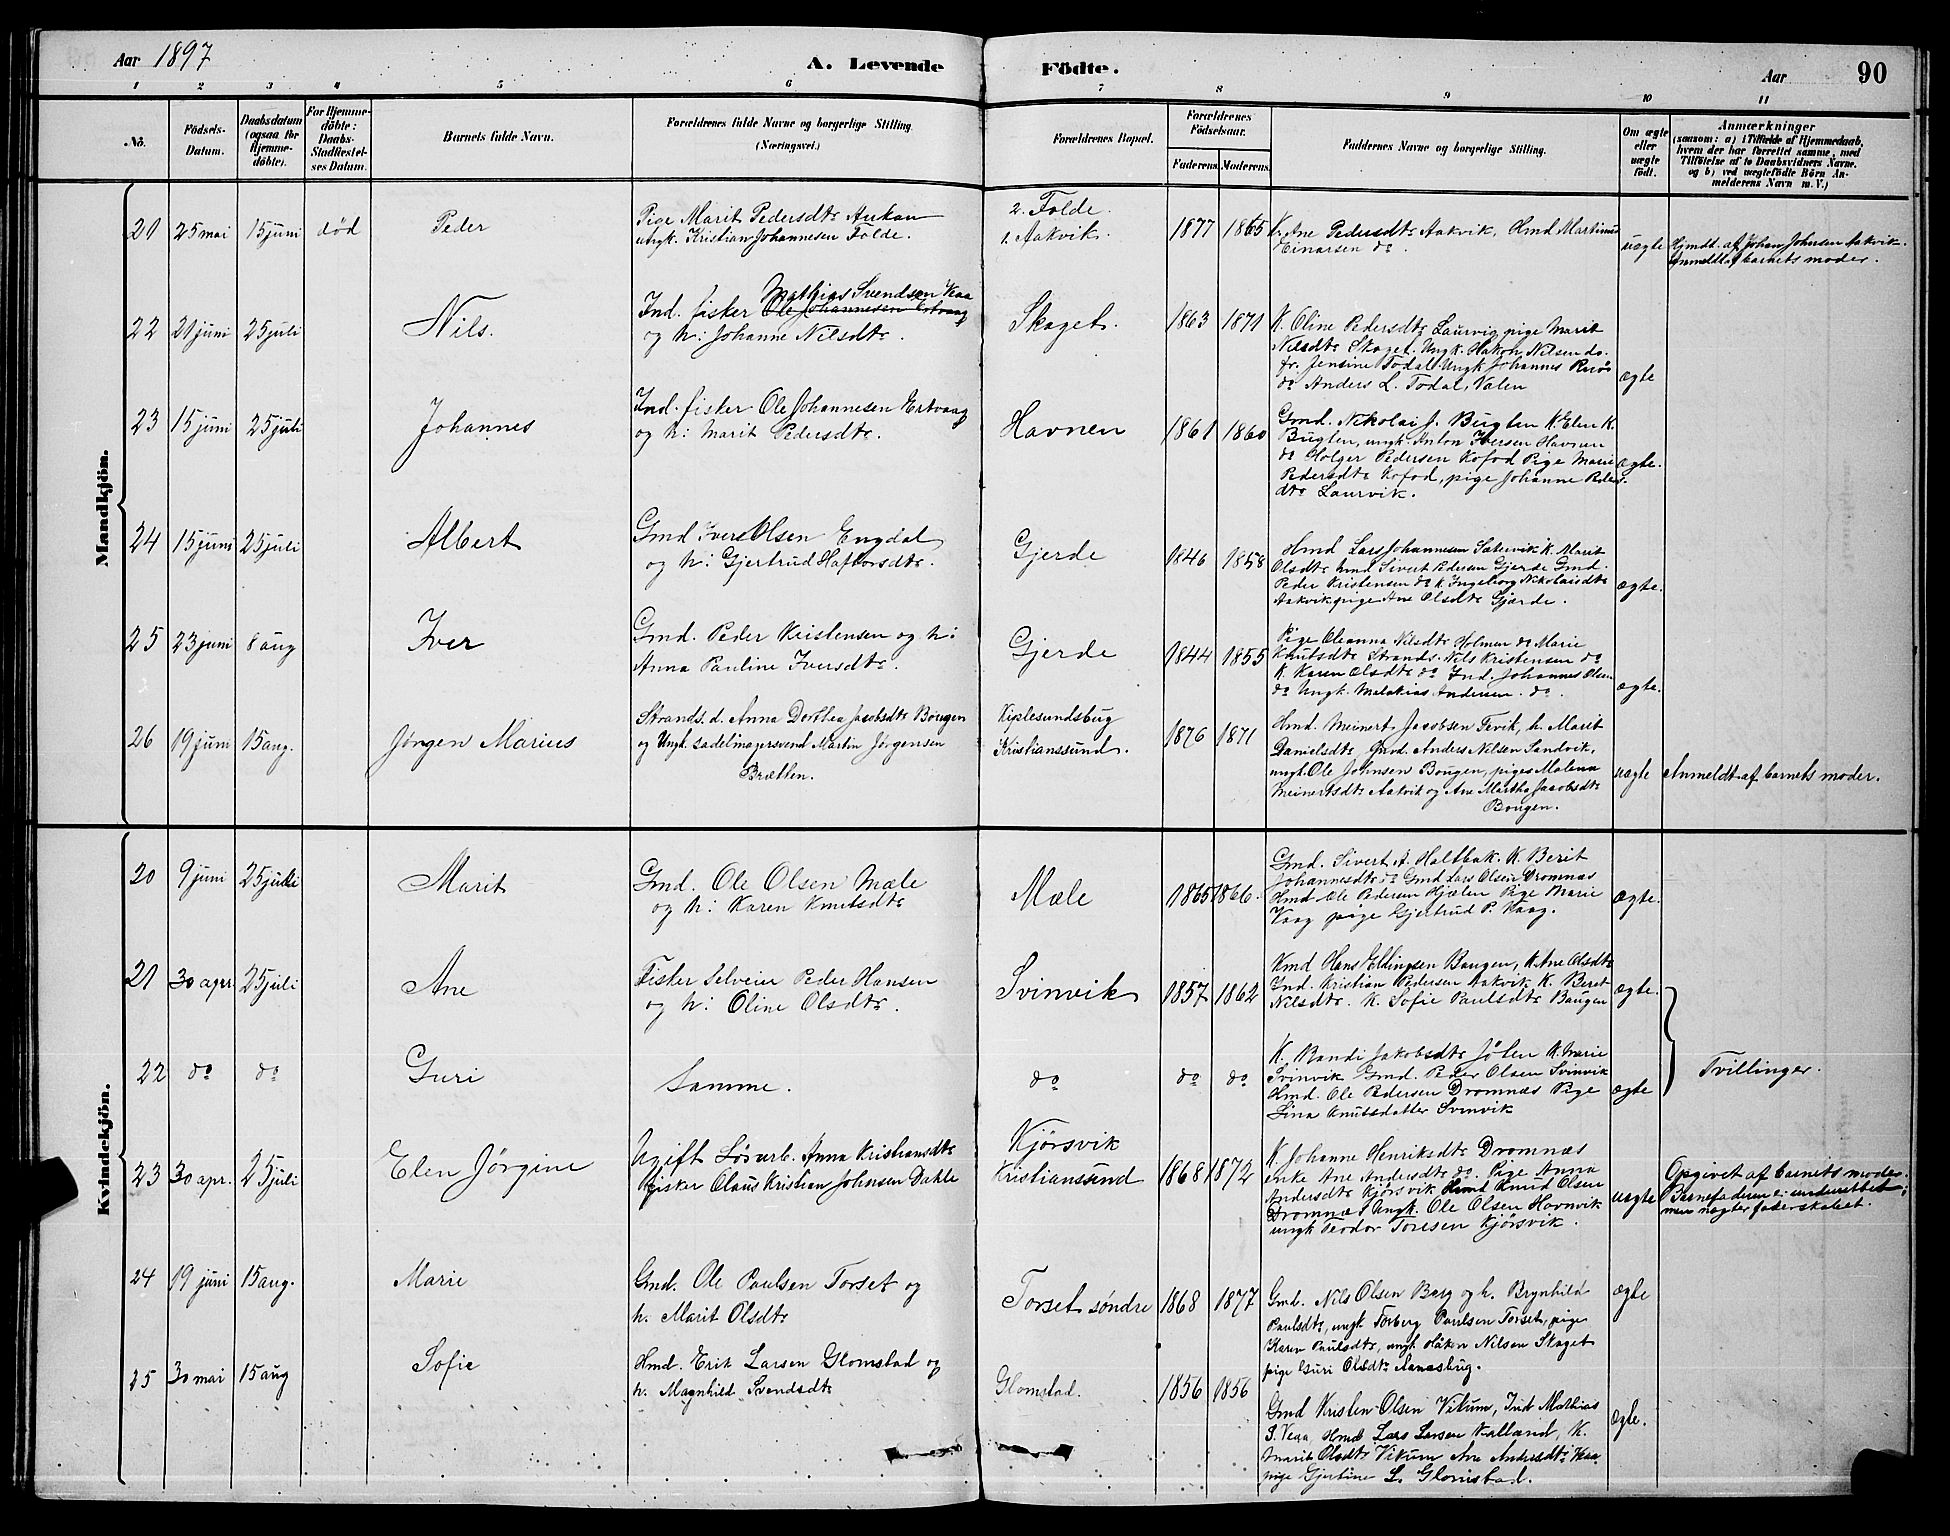 Aar 1897 A. Levende Födte. Aar 90
1 2 3 4 5 6 7 8 9 10 11
No. Födsels-Datum. Daabsdatum (ogsaa for Hjemmedöbte). For Hjemmedöbte: Daabs-Stadfæstelses Datum. Barnets fulde Navn. Forældrenes fulde Navne og borgerlige Stilling (Næringsvei.) Forældrenes Bopæl. Forældrenes Födselsaar. Faderens Moderens Faddernes Navne og borgerlige Stilling. Om ægte eller uægte födt. Anmærkninger (saasom: a) i Tilfælde af Hjemmedaab, hvem der har forrettet samme, med Tilföielse af to Daabsvidners Navne. og b) ved uægtefödte Börn Anmelderens Navn m. V.)
Mandkjön.
21 25 mai 15 juni död Peder
Pige Marit Pedersdtr Aukan
ungk. Kristian Johannesen Folde.
2. Folde.
1. Aakvik.
1877 1865
K. Ane Pedersdtr Aakvik, Hmd Martinus
Einarsen do
uægte
Hjmdt. af Johan Johnsen Aakvik.
Anmeldt af barnets moder.
22 21 juni 25 juli Nils.
Mathias Svendsen Vaa
Ind. fisker Ole Johannesen Ertvaag
og h: Johanne Nilsdtr.
Skaget.
1863 1871
K. Oline Pedersdtr Laurvig, pige Marit
Nilsdtr Skaget. Ungk. Hakon Nilsen do.
fr. Jensine Todal Ungk Johannes
do Anders L. Todal, Valen
ægte
23 15 juni 25 juli Johannes
Ind. fisker Ole Johannesen Ertvaag
og h: Marit Pedersdtr.
Havnen
1861 1860
Gmd. Nikolai J. Bugten K. Elen K.
Bugten, ungk. Anton Iversen Havnen
do Holger Pedersen Kofod Pige Marie
Pedersdtr Kofod, pige Johanne Peders
dtr Laurvik.
ægte.
24 15 juni 25 juli Albert
Gmd Iver Olsen Engdal
og h: Gjertrud Haftorsdtr.
Gjerde
1846 1858
Hmd Lars Johannesen Sætervik K. Marit
Olsdtr hmd Sivert Pedersen Gjerde Gmd.
Peder Kristensen do K. Ingeborg Nikolaisdtr
Aakvik pige Ane Olsdtr Gjærde.
ægte.
25 23 juni 8 aug Iver
Gmd. Peder Kristensen og h:
Anna Pauline Iversdtr.
Gjerde
1844 1855
Pige Oleanna Nilsdtr Holmen do Marie
Knutsdtr Strands. Nils Kristensen do
K. Karen Olsdtr do Ind. Johannes Olsen
do Ungk. Melakias Andersen do.
ægte.
26 19 juni 15 aug. Jørgen Marius
Strands. d. Anna Dorthea Jacobsdtr Bougen
og Ungk. sadelmagersvend Martin Jørgensen
Brætten.
Kiplesundsbug
Kristianssund.
1876 1871
Hmd. Meinert Jacobsen Tevik, h. Marit
Danielsdtr, Gmd. Anders Nilsen Sandvik,
ungk. Ole Johnsen Bougen, piges Malena
Meinertsdtr Aakvik og Ane Martha Jacobsdtr
Bougen.
uægte
Anmeldt af barnets moder.
Kvindekjön.
20 9 juni 25 juli Marit
Gmd. Ole Olsen Mæle
og h: Karen Knutsdtr
Mæle
1865 1866.
Gmd. Sivert A. Haltbak. K. Berit
Johannesdtr do Gmd Lars Olsen Dromnæs
Hmd Ole Pedersen Hjælen Pige Marie
Vaag pige Gjertrud P. Vaag.
ægte.
21 30 apr. 25 juli Ane
Fisker Selveier Peder Hansen
og h: Oline Olsdtr.
Svinvik
1857 1862
Kmd Hans Eldingsen Baugen, K. Ane Olsdtr
Ind. Kristian Pedersen Aakvik K. Beret
Nilsdtr. K. Sofie Paulsdtr Baugen
ægte.
22 do do Guri
Samme.
do
do do
K. Randi Jakobsdtr Jölen K. Marie
Svinvik Gmd. Peder Olsen Svinvik
Hmd. Ole Pedersen Dromnæs Pige
Lina Knutsdatter Svinvik
ægte
Tvillinger.
23 30 apr. 25 juli Elen Jörgine
Ugift Løsarb. Anna Kristiansdtr
Fisker Claus Kristian Johnsen Dahle
Kjörsvik
Kristianssund
1868 1872
K Johanne Henriksdtr Dromnæs
enke Ane Andersdtr do. Pige Anna
Andersdtr Kjörsvik Hmd Knud Olsen
Dromnæs Ungk. Ole Olsen Hovnvik
ungk Teodor Toresen Kjörsvik.
uægte
Opgivet af barnets moder.
Barnefaderen er underrettet;
men nægter faderskabet.
24 19 juni 15 aug. Marie
Gmd. Ole Paulsen Torset og
h. Marit Olsdtr
Torset søndre
1868 1877
Gmd. Nils Olsen Berg og h. Brynhild
Paulsdtr, ungk. Torberg Paulsen Torset, pige
Karen Paulsdtr, ungk Håken Nilsen Skaget
pige Guri Olsdtr Aanesbug.
ægte
25 30 mai 15 aug Sofie
Hmd. Erik Larsen Glomstad og
h. Magnhild Svendsdtr
Glomstad.
1856 1856
Gmd Kristen Olsen Vikum, Ind Mathias
S. Veaa, Hmd Lars Larsen Valland, K.
Marit Olsdtr Vikum Ane Andersdtr Veaa
pige Gjertine L. Glomstad.
ægte.